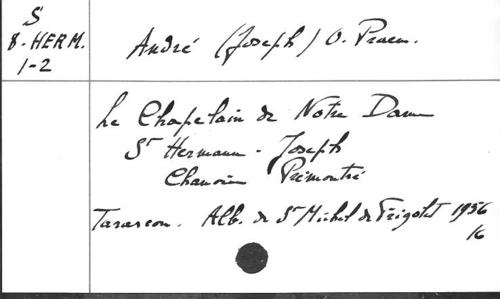 S
8-HERM.
1-2
André (Joseph) O. Praem.
Le Chapelain de Notre Dame
St Hermann-Joseph
Chanoine Prémontré
Tarascon. Alb. de St Michel de Frigolet 1956
16